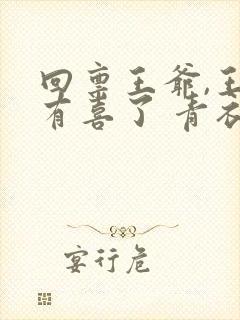 回禀王爷,王
有喜了 青衣
宴行危